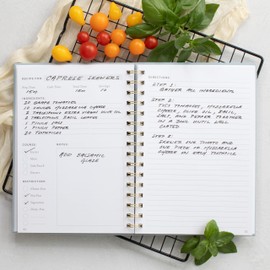 CAPRESE SKEWERS
INGREDIENTS
20 GRAPE TOMATOES
10 OUNCES MOZZARELLA CHEESE
2 TABLESPOONS EXTRA VIRGIN OLIVE OIL
2 TABLESPOONS BASIL LEAVES
1 PINCH SALT
1 PINCH PEPPER
20 TOOTHPICKS
COURSE
NOTES
ADD BALSAMIC
GLAZE
DIRECTIONS
STEP 1:
GATHER ALL INGREDIENTS
STEP 2:
TOSS TOMATOES, MOZZARELLA
CHEESE, OLIVE OIL, BASIL,
SALT, AND PEPPER TOGETHER
IN A BOWL UNTIL WELL
COATED
STEP 3:
SKEWER ONE TOMATO AND
ONE PIECE OF MOZZARELLA
CHEESE ON EACH TOOTHPICK